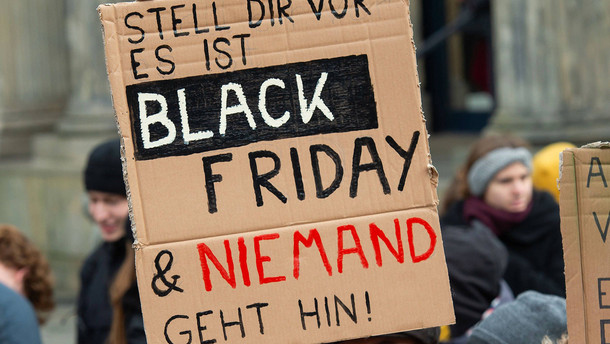 STELL DIR VOR
ES IST
BLACK
FRIDAY
& NIEMAND
GEHT HIN!